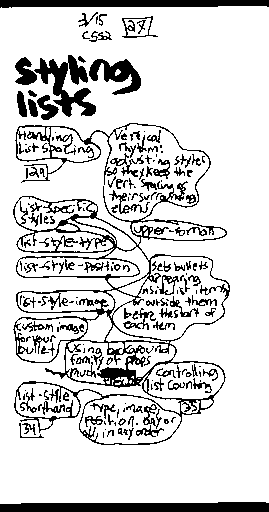 3/15
CSS2
28
styling
lists
Handling
list spacing
29
Vertical
rhythm:
adjusting styles
so they keep the
vert. spacing as
their surrounding
elems
list-specific
styles
list-style-type
upper-roman
list-style-position
Sets bullets
appearing
inside list items
or outside them
before the start of
each item
list-style-image
custom image
for your
bullet
Using background
family of props
much
flexible
controlling
list counting
35
list-style
shorthand
34
type, image,
position. any or
all, in any order